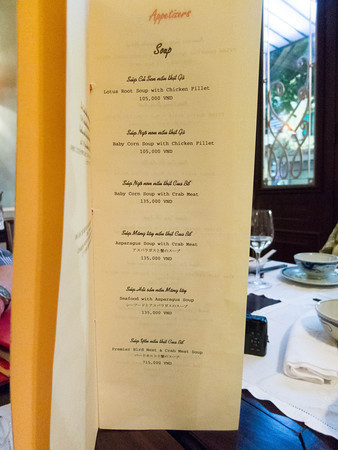 Appetizers
Soup
Súp Củ Sen nấu thịt Gà
Lotus Root Soup with Chicken Fillet
105,000 VND
Súp Ngô non nấu thịt Gà
Baby Corn Soup with Chicken Fillet
105,000 VND
Súp Ngô non nấu thịt Cua Bể
Baby Corn Soup with Crab Meat
135,000 VND
Súp Măng tây nấu thịt Cua Bể
Asparagus Soup with Crab Meat
アスパラガスと蟹のスープ
135,000 VND
Súp Hải sản nấu Măng tây
Seafood with Asparagus Soup
シーフードとアスパラガスのスープ
135,000 VND
Súp Yến nấu thịt Cua Bể
Premier Bird Nest & Crab Meat Soup
715,000 VND